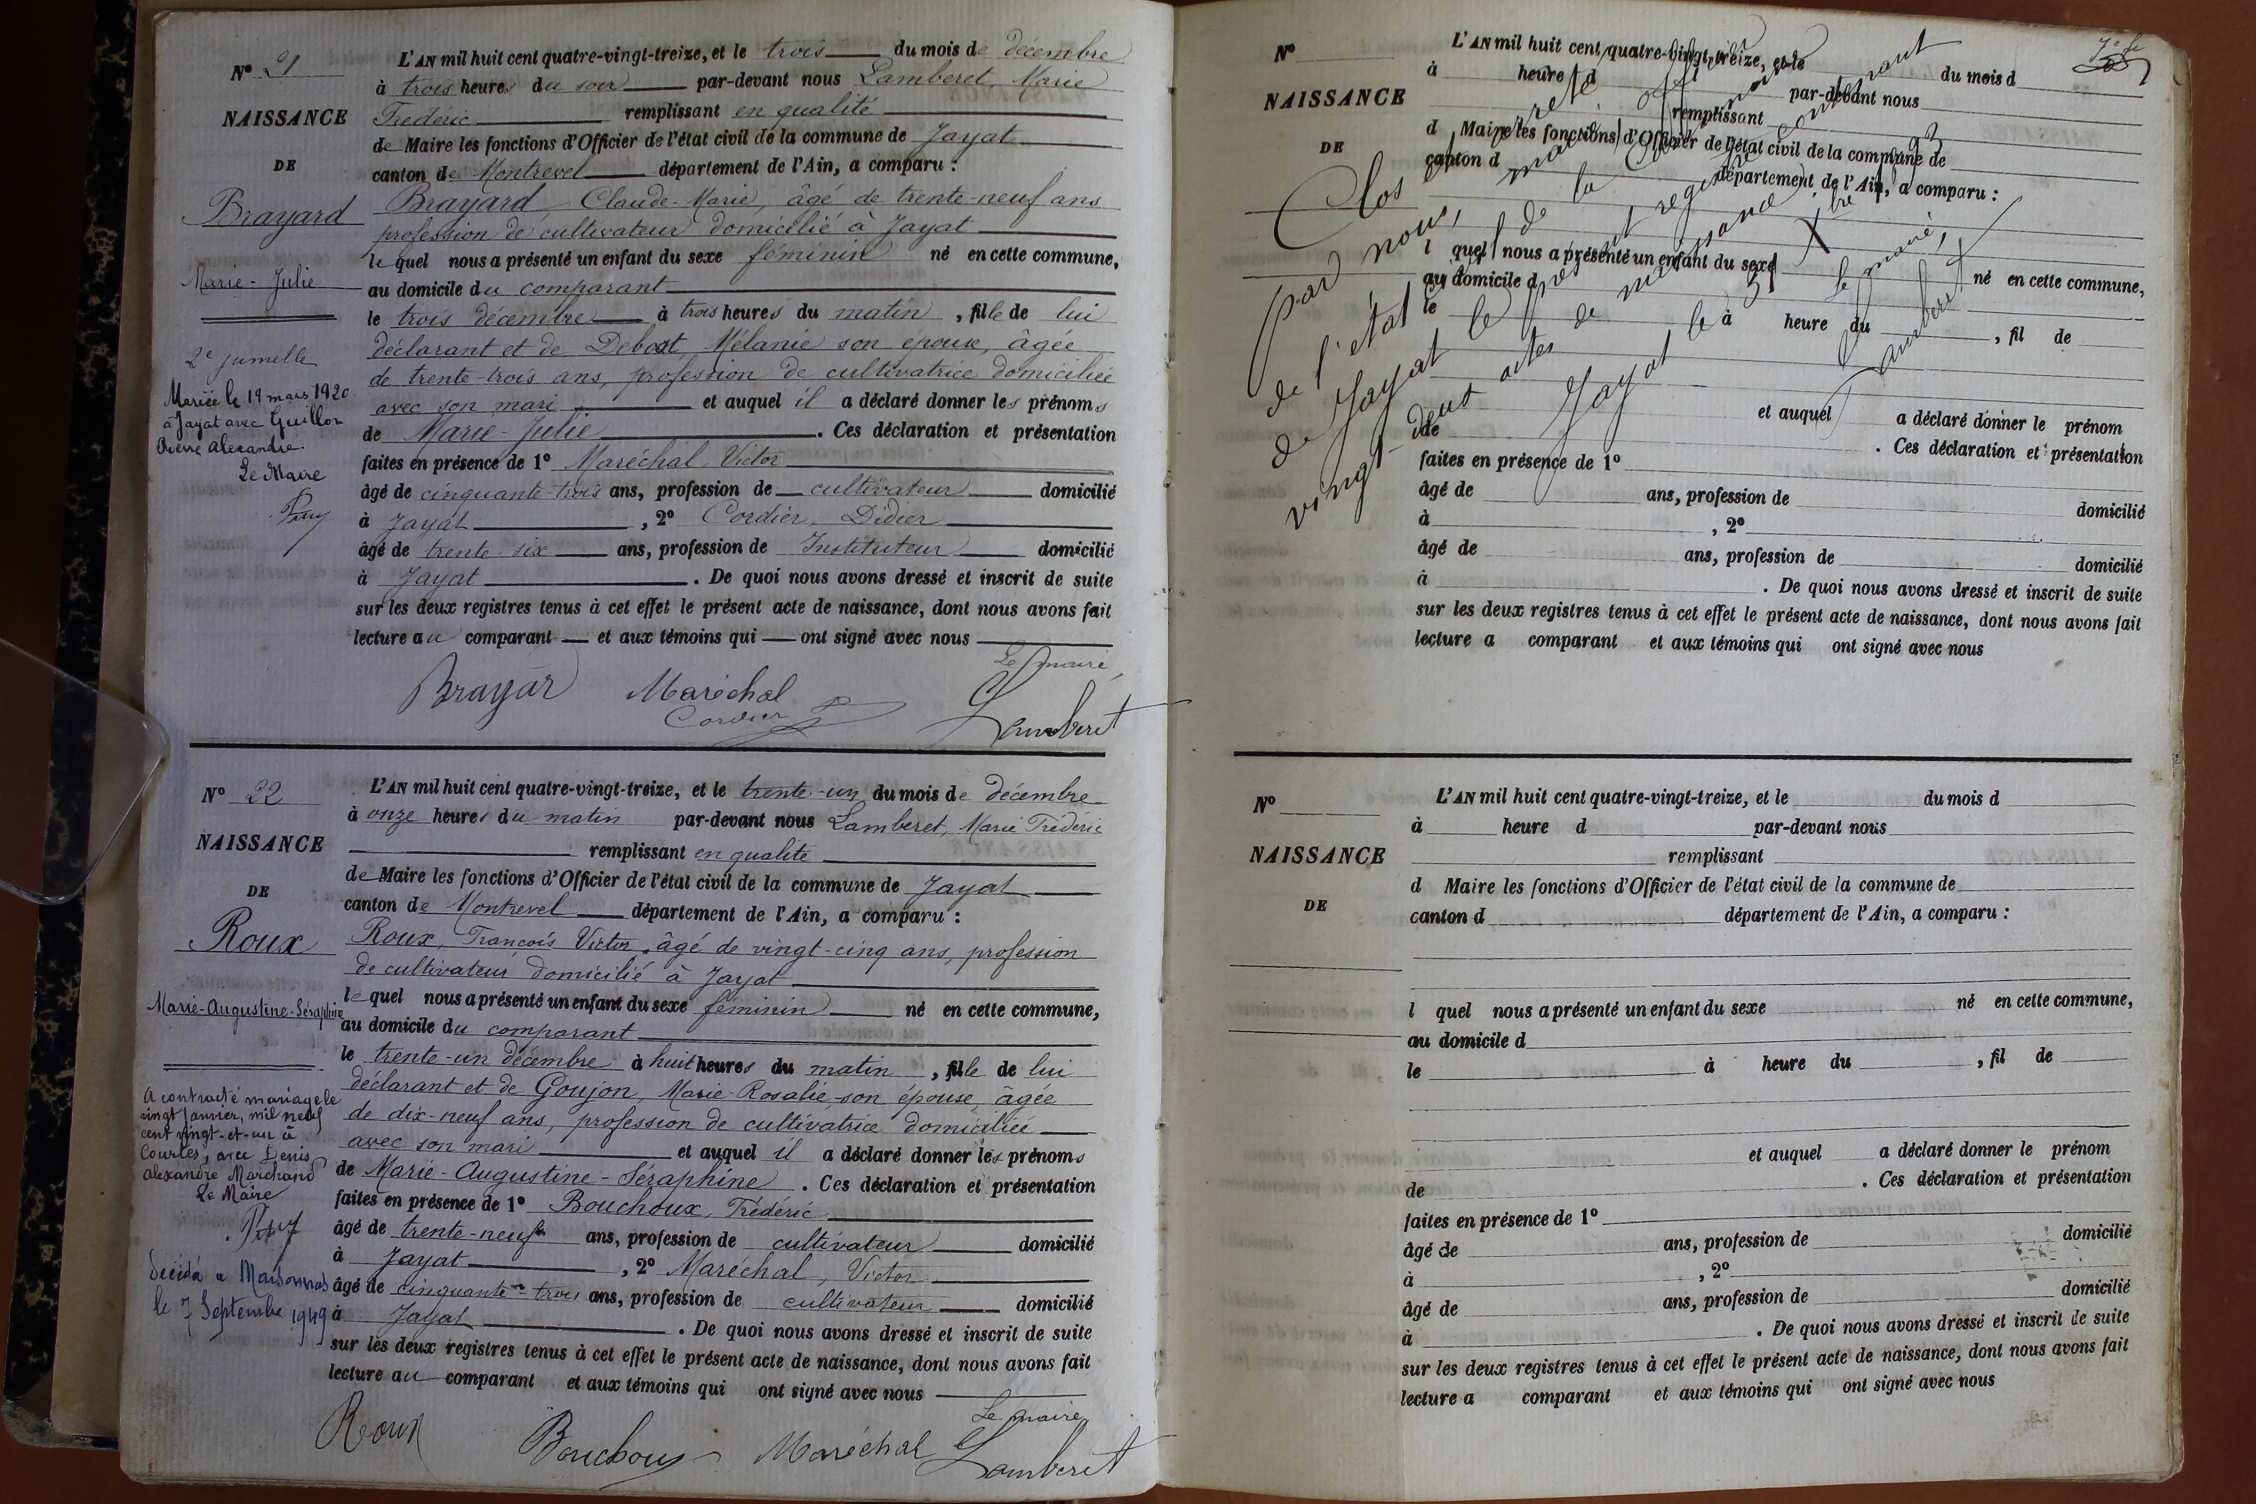 N° 21
NAISSANCE
DE
Brayard
Marie-Julie
2e jumelle
Mariée le 19 mars 1920
à Jayat avec Guillon
Pierre Alexandre.
Le Maire
L'AN mil huit cent quatre-vingt-treize, et le trois du mois de décembre
à trois heures du soir par-devant nous Lamberet, Marie
Frédéric remplissant en qualité
de Maire les fonctions d'Officier de l'état civil de la commune de Jayat
canton de Montrevel département de l'Ain, a comparu :
Brayard Claude-Marie, âgé de trente-neuf ans
profession de cultivateur domicilié à Jayat
lequel nous a présenté un enfant du sexe féminin né en cette commune,
au domicile du comparant
le trois décembre à trois heures du matin, fille de lui
déclarant et de Debost, Mélanie son épouse, âgée
de trente-trois ans, profession de cultivatrice domiciliée
avec son mari et auquel il a déclaré donner les prénoms
de Marie-Julie. Ces déclaration et présentation
faites en présence de 1° Maréchal, Victor
âgé de cinquante-trois ans, profession de cultivateur domicilié
à Jayat, 2° Cordier, Didier
âgé de trente-six ans, profession de Instituteur domicilié
à Jayat. De quoi nous avons dressé et inscrit de suite
sur les deux registres tenus à cet effet le présent acte de naissance, dont nous avons fait
lecture au comparant et aux témoins qui ont signé avec nous
Le maire,
Brayar Maréchal
Cordier Lamberet
N° 22
NAISSANCE
DE
Roux
Marie-Augustine-Séraphine
A contracté mariage le
vingt Janvier, mil neuf
cent vingt-et-un à
Courtes, avec Denis
Alexandre Marchand
Le Maire
Décédé à Marsonnas
le 7 Septembre 1949
L'AN mil huit cent quatre-vingt-treize, et le trente-un du mois de décembre
à onze heures du matin par-devant nous Lamberet, Marie Frédéric
remplissant en qualité
de Maire les fonctions d'Officier de l'état civil de la commune de Jayat
canton de Montrevel département de l'Ain, a comparu :
Roux, François Victor, âgé de vingt-cinq ans, profession
de cultivateur domicilié à Jayat
lequel nous a présenté un enfant du sexe féminin né en cette commune,
au domicile du comparant
le trente-un décembre à huit heures du matin, fille de lui
déclarant et de Goujon, Marie-Rosalie son épouse, âgée
de dix-neuf ans, profession de cultivatrice domiciliée
avec son mari et auquel il a déclaré donner les prénoms
de Marie-Augustine-Séraphine. Ces déclaration et présentation
faites en présence de 1° Bouchoux, Frédéric
âgé de trente-neuf ans, profession de cultivateur domicilié
à Jayat, 2° Maréchal, Victor
âgé de cinquante-trois ans, profession de cultivateur domicilié
à Jayat. De quoi nous avons dressé et inscrit de suite
sur les deux registres tenus à cet effet le présent acte de naissance, dont nous avons fait
lecture au comparant et aux témoins qui ont signé avec nous
Le maire,
Roux Bouchoux Maréchal Lamberet
N°
NAISSANCE
DE
L'AN mil huit cent quatre-vingt-treize, et le du mois d
à heure d par-devant nous
remplissant
d Maire les fonctions d'Officier de l'état civil de la commune de
canton d département de l'Ain, a comparu :
l quel nous a présenté un enfant du sexe né en cette commune,
au domicile d
le à heure du , fil de
et auquel a déclaré donner le prénom
de . Ces déclaration et présentation
faites en présence de 1°
âgé de ans, profession de domicilié
à , 2°
âgé de ans, profession de domicilié
à . De quoi nous avons dressé et inscrit de suite
sur les deux registres tenus à cet effet le présent acte de naissance, dont nous avons fait
lecture a comparant et aux témoins qui ont signé avec nous
Clos et arrêté
par nous, maire, officier
de l'état civil de la commune
de Jayat le présent registre comprenant
vingt-deux actes de naissance.
Jayat le 31 Xbre 1893
Le maire,
Lamberet
N°
NAISSANCE
DE
L'AN mil huit cent quatre-vingt-treize, et le du mois d
à heure d par-devant nous
remplissant
d Maire les fonctions d'Officier de l'état civil de la commune de
canton d département de l'Ain, a comparu :
l quel nous a présenté un enfant du sexe né en cette commune,
au domicile d
le à heure du , fil de
et auquel a déclaré donner le prénom
de . Ces déclaration et présentation
faites en présence de 1°
âgé de ans, profession de domicilié
à , 2°
âgé de ans, profession de domicilié
à . De quoi nous avons dressé et inscrit de suite
sur les deux registres tenus à cet effet le présent acte de naissance, dont nous avons fait
lecture a comparant et aux témoins qui ont signé avec nous